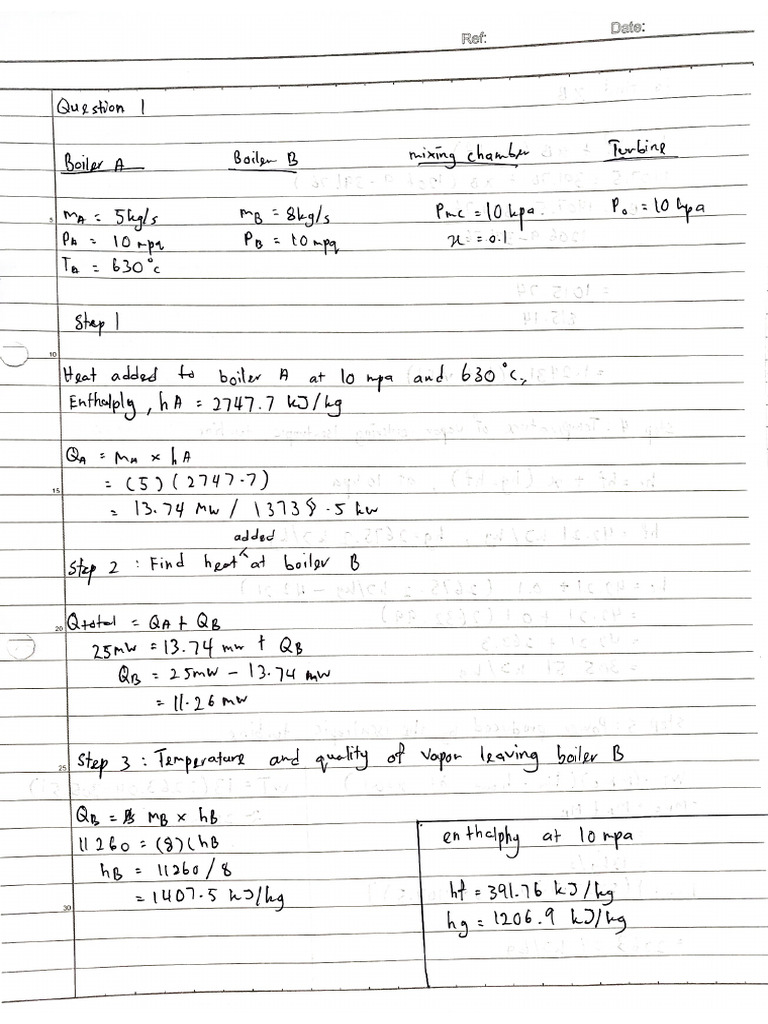 Ref:
Date:
Question 1
Boiler A
Boiler B
mixing chamber
Turbine
5
mA = 5kg/s
mB = 8kg/s
Pmc = 10 kpa
Po = 10 kpa
PA = 10 mpa
PB = 10 mpa
x = 0.1
TA = 630°c
Step 1
10
Heat added to boiler A at 10 mpa and 630°c,
Enthalply, hA = 2747.7 kJ/kg
QA = mA × hA
15
= (5)(2747.7)
= 13.74 MW / 13738.5 kw
added
Step 2 : Find heat at boiler B
20
Qtotal = QA + QB
25mw = 13.74 mw + QB
QB = 25mw - 13.74 mw
= 11.26 mw
25
Step 3 : Temperature and quality of vapor leaving boiler B
QB = mB × hB
11260 = (8)(hB
hB = 11260/8
= 1407.5 kJ/kg
30
enthalphy at 10 mpa
hf = 391.76 kJ/kg
hg = 1206.9 kJ/kg